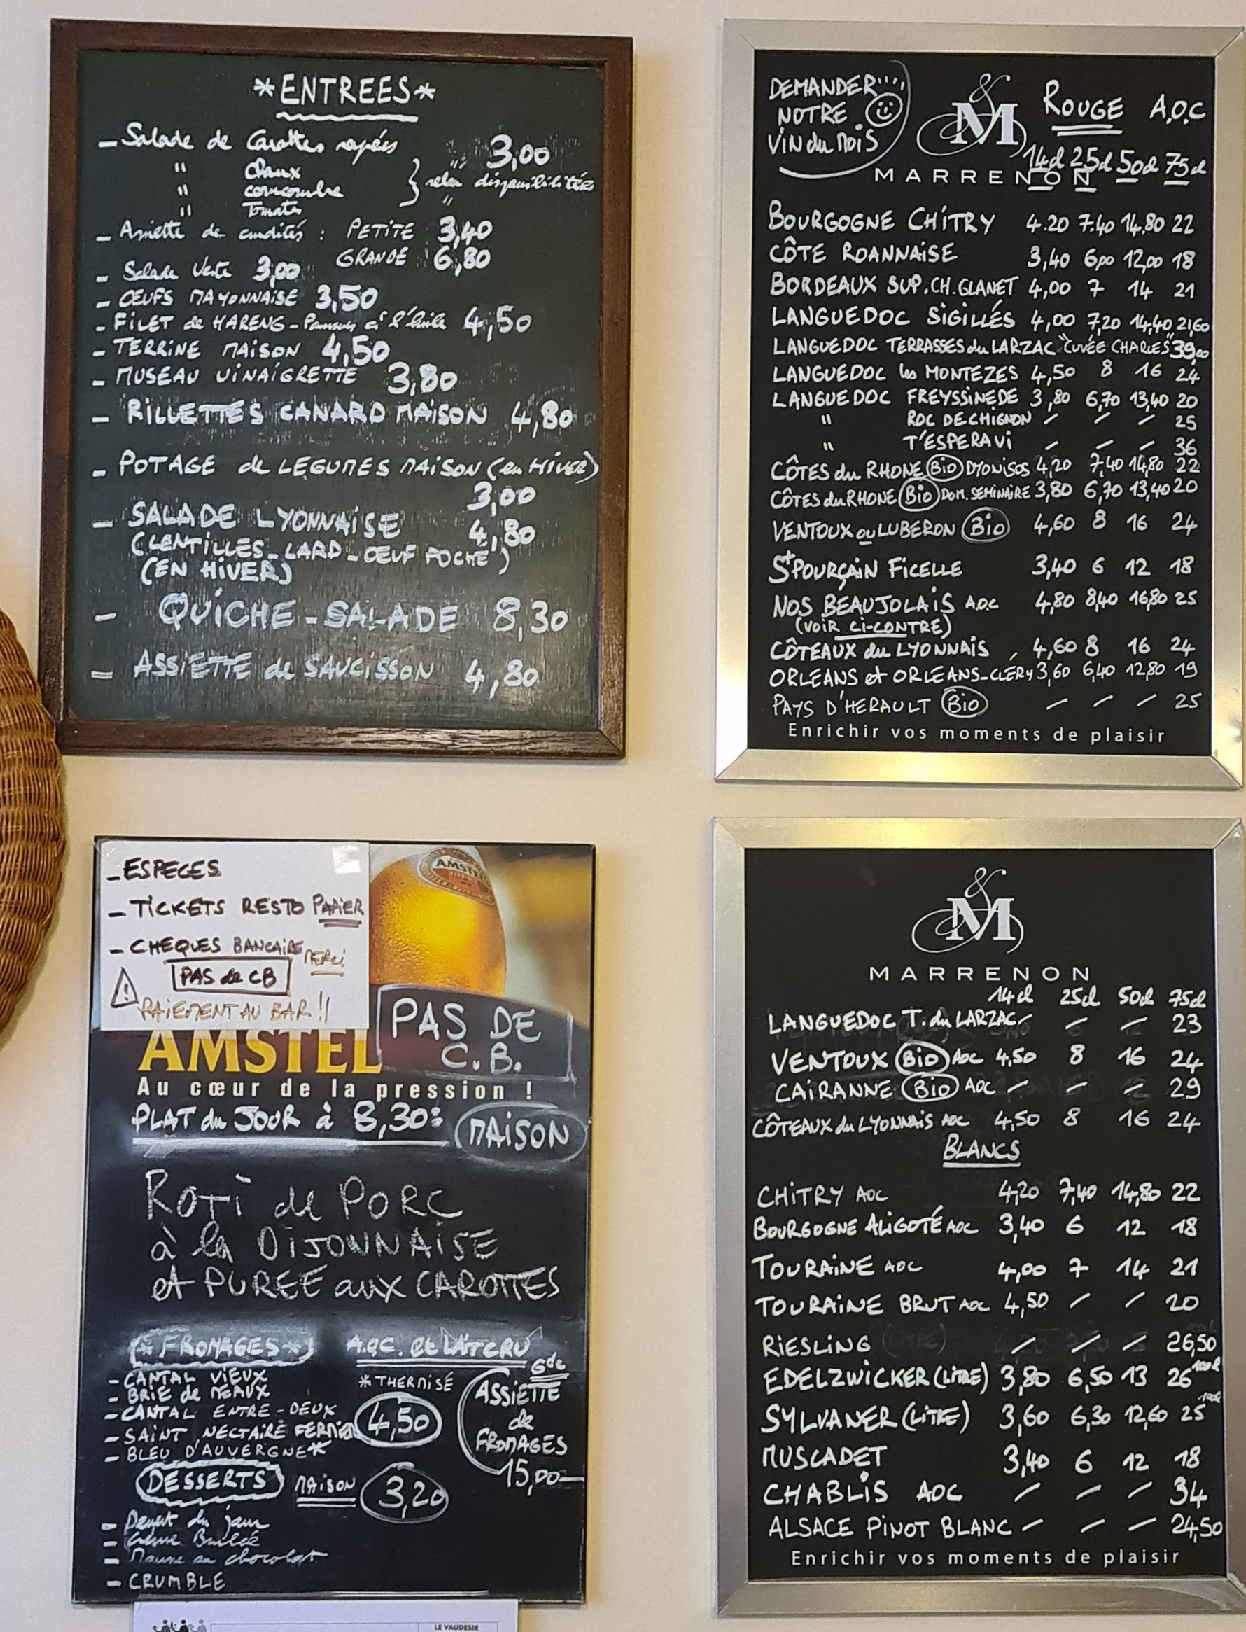 *ENTREES*
- Salade de Carottes rapées 3,00
" Choux "
" concombre } selon disponibilités
" Tomates "
- Assiette de crudités : PETITE 3,40
GRANDE 6,80
- Salade Verte 3,00
- OEUFS MAYONNAISE 3,50
- FILET de HARENG - Pommes à l'huile 4,50
- TERRINE MAISON 4,50
- MUSEAU VINAIGRETTE 3,80
- RILLETTES CANARD MAISON 4,80
- POTAGE de LEGUMES MAISON (en HIVER)
3,00
- SALADE LYONNAISE 4,80
(LENTILLES - LARD - OEUF POCHE)
(EN HIVER)
- QUICHE - SALADE 8,30
- ASSIETTE de SAUCISSON 4,80
DEMANDER
NOTRE
VIN du MOIS
&
M
MARRENON
ROUGE A.O.C
14cl 25cl 50cl 75cl
BOURGOGNE CHITRY 4.20 7.40 14,80 22
CÔTE ROANNAISE 3,40 6,00 12,00 18
BORDEAUX SUP. CH. GLANET 4,00 7 14 21
LANGUEDOC SIGILLÉS 4,00 7,20 14,40 21,60
LANGUEDOC TERRASSES du LARZAC "CUVÉE CHARLES" 39,00
LANGUEDOC les MONTEZES 4,50 8 16 24
LANGUEDOC FREYSSINEDE 3,80 6,70 13,40 20
" ROC DE CHIGNON / / / 25
" T'ESPERAVI / / / 36
CÔTES du RHONE Bio DYONISOS 4,20 7,40 14,80 22
CÔTES du RHONE Bio DOM. SEMINAIRE 3,80 6,70 13,40 20
VENTOUX ou LUBERON Bio 4,60 8 16 24
St POURÇAIN FICELLE 3,40 6 12 18
NOS BEAUJOLAIS AOC 4,80 8,40 16,80 25
(VOIR CI-CONTRE)
CÔTEAUX du LYONNAIS 4,60 8 16 24
ORLEANS et ORLEANS-CLERY 3,60 6,40 12,80 19
PAYS D'HERAULT Bio / / / 25
Enrichir vos moments de plaisir
- ESPECES
- TICKETS RESTO PAPIER
- CHEQUES BANCAIRE MERCI
PAS de CB
! PAIEMENT AU BAR !!
AMSTEL
PAS DE
C.B.
AMSTEL
Au cœur de la pression !
PLAT du JOUR à 8,30: MAISON
ROTI de PORC
à la DIJONNAISE
et PUREE aux CAROTTES
*FROMAGES* A.O.C. et LAIT CRU
* THERMISÉ
- CANTAL VIEUX
- BRIE de MEAUX
- CANTAL ENTRE-DEUX
- SAINT NECTAIRE FERMIER
- BLEU D'AUVERGNE*
4,50
Gde
ASSIETTE
de
FROMAGES
15,00
DESSERTS MAISON 3,20
- Dessert du jour
- Crème Brulée
- Mousse au chocolat
- CRUMBLE
LE VAUDESIR
&
M
MARRENON
14cl 25cl 50cl 75cl
LANGUEDOC T. du LARZAC / / / 23
VENTOUX Bio AOC 4,50 8 16 24
CAIRANNE Bio AOC / / / 29
CÔTEAUX du LYONNAIS AOC 4,50 8 16 24
BLANCS
CHITRY AOC 4,20 7,40 14,80 22
BOURGOGNE ALIGOTÉ AOC 3,40 6 12 18
TOURAINE AOC 4,00 7 14 21
TOURAINE BRUT AOC 4,50 / / 20
RIESLING (LITRE) / / / 26,50
EDELZWICKER (LITRE) 3,80 6,50 13 26 100cl
SYLVANER (LITRE) 3,60 6,30 12,60 25 100cl
MUSCADET 3,40 6 12 18
CHABLIS AOC / / / 34
ALSACE PINOT BLANC / / / 24,50
Enrichir vos moments de plaisir